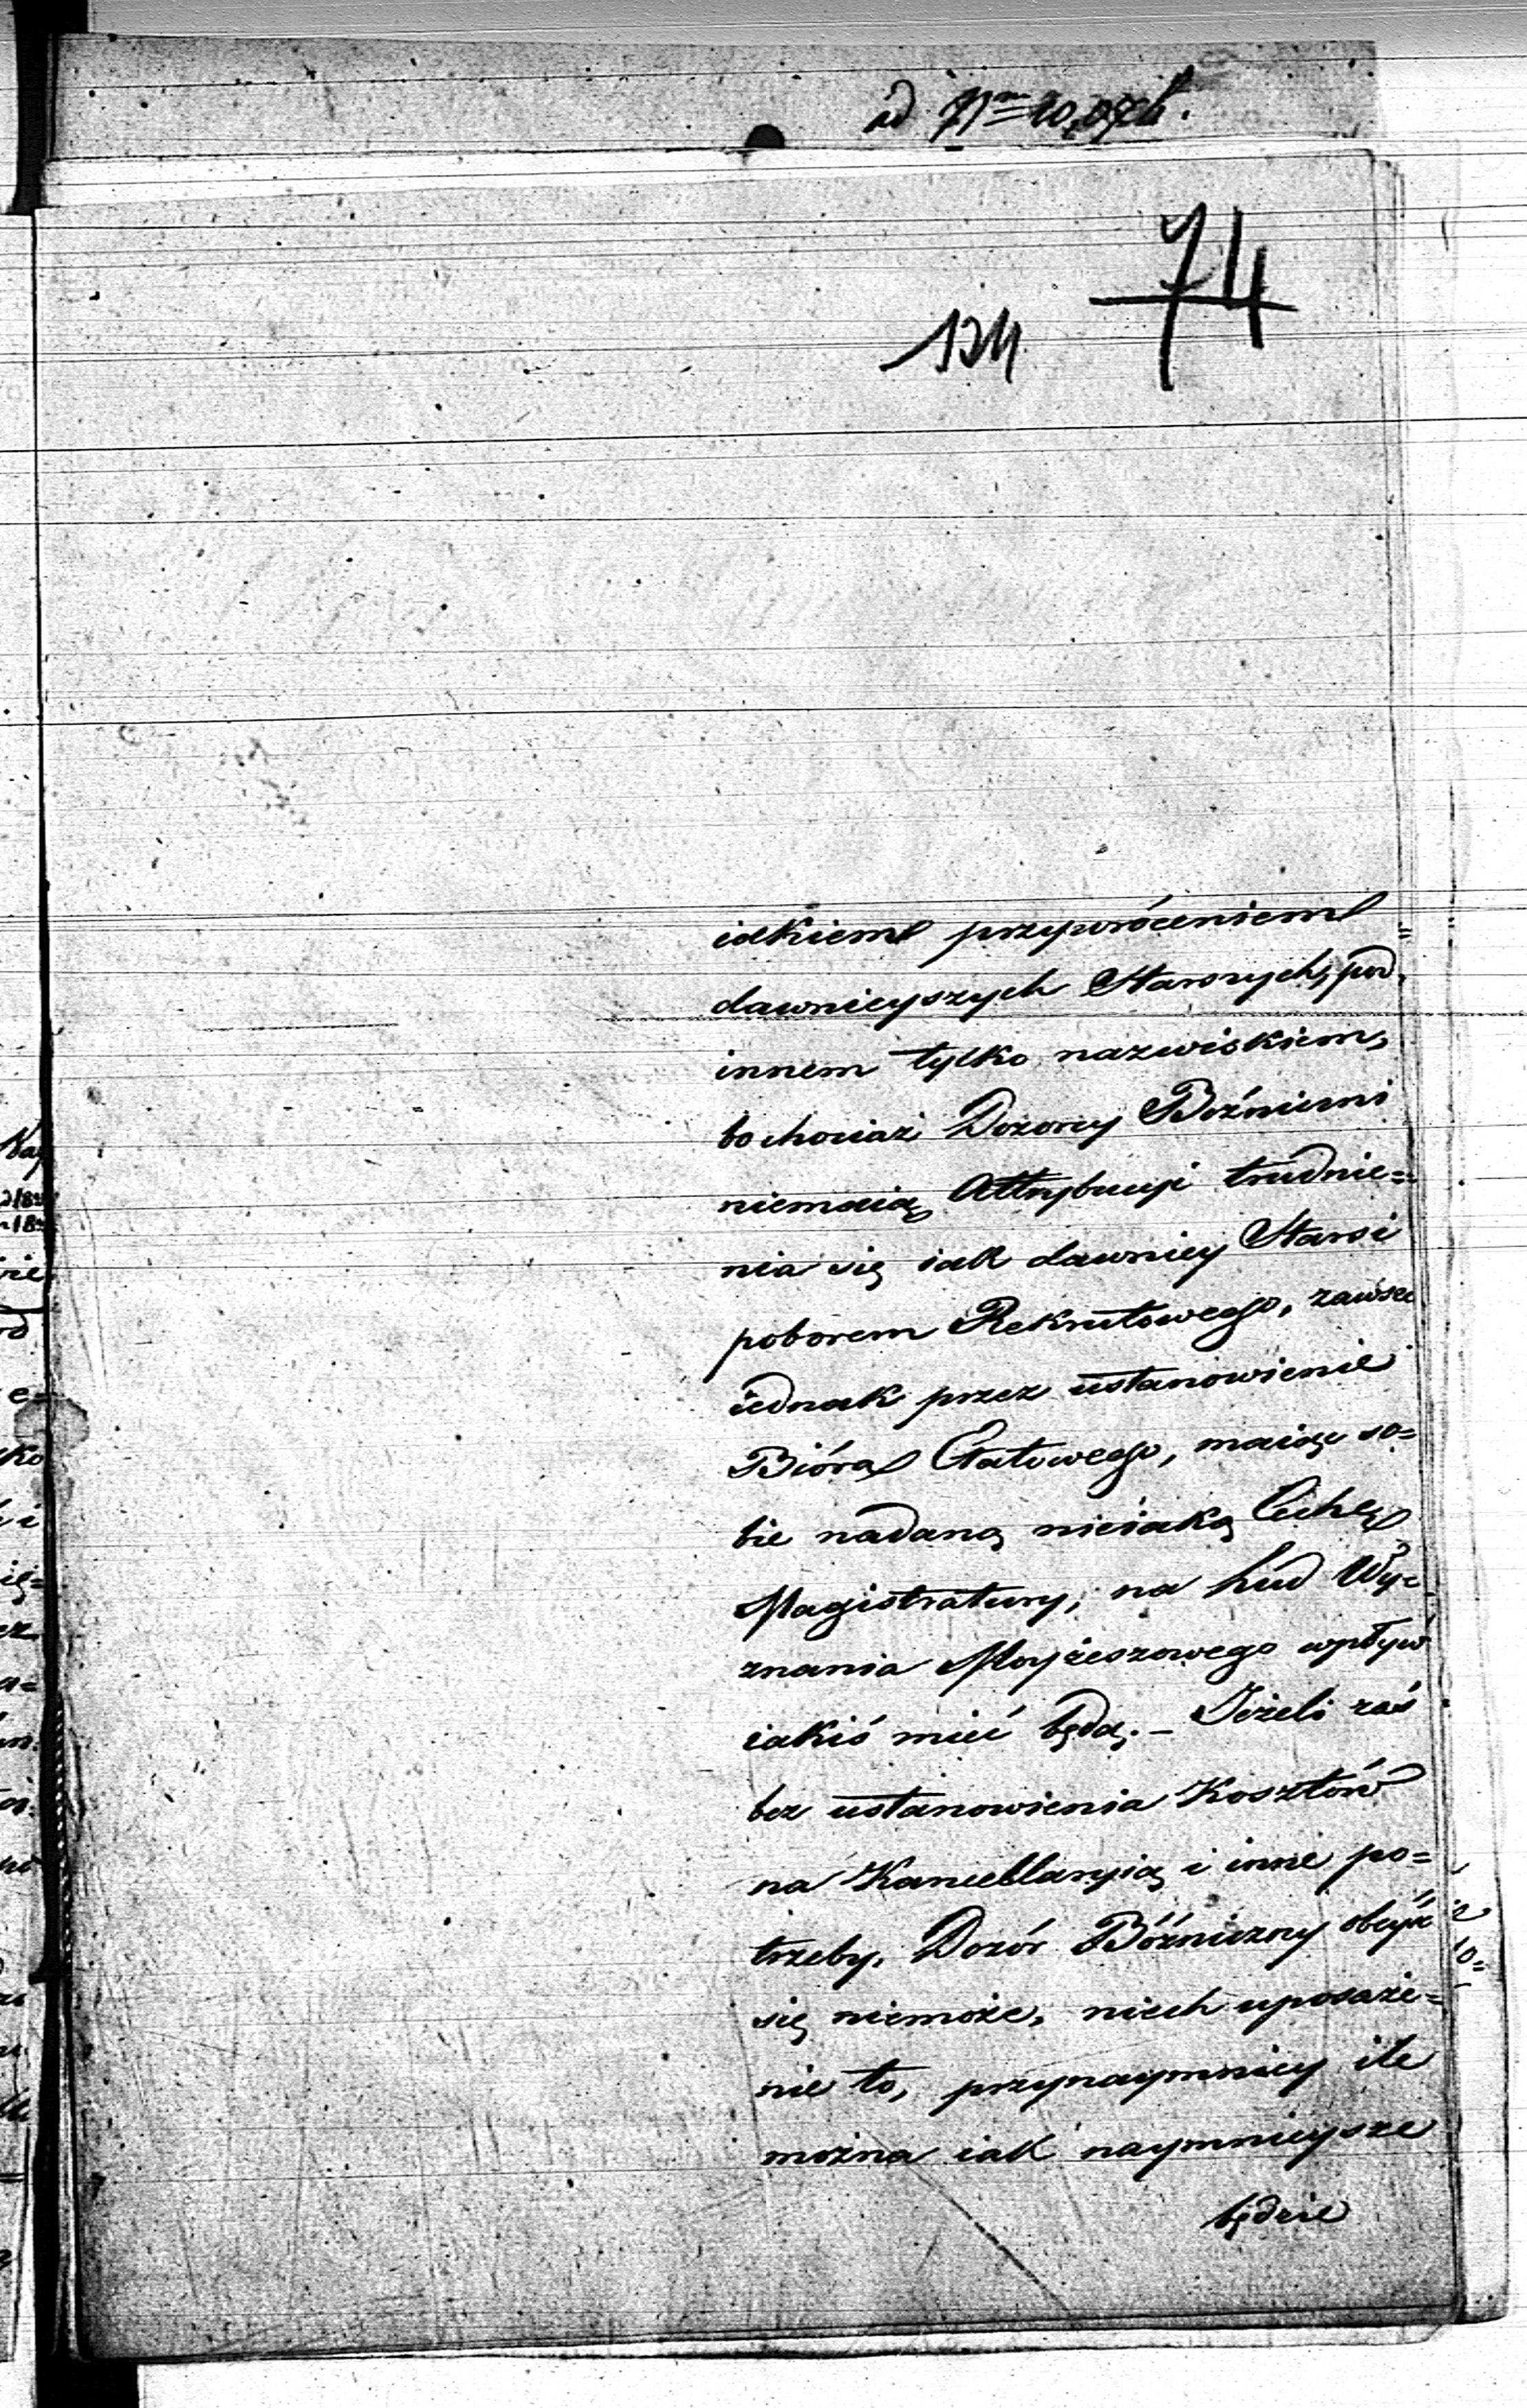 ad N
74
134
iakiem przywróceniem
dawnieyszych Starszych, pod
innem tylko nazwiskiem,
bo chociaż Dozory Bożnicze
niemaią Attrybucyi trudnie=
nia się iak dawniey Starsi
poborem Rekrutowego, zawsze
iednak przez ustanowienie
Bióra Etatowego, maiąc so=
bie nadaną nieiaką Cechę
Magistratury, na lud Wy=
znania Moyżeszowego wpływ
iakiś mieć będą. – Jeżeli zaś
bez ustanowienia Kosztów
na Kancellaryią i inne po=
trzeby, Dozór Bóżniczny obeyść
się niemoże, niech uposaże=
nie to, przynaymniey ile
można iak naymnieysze
będzie